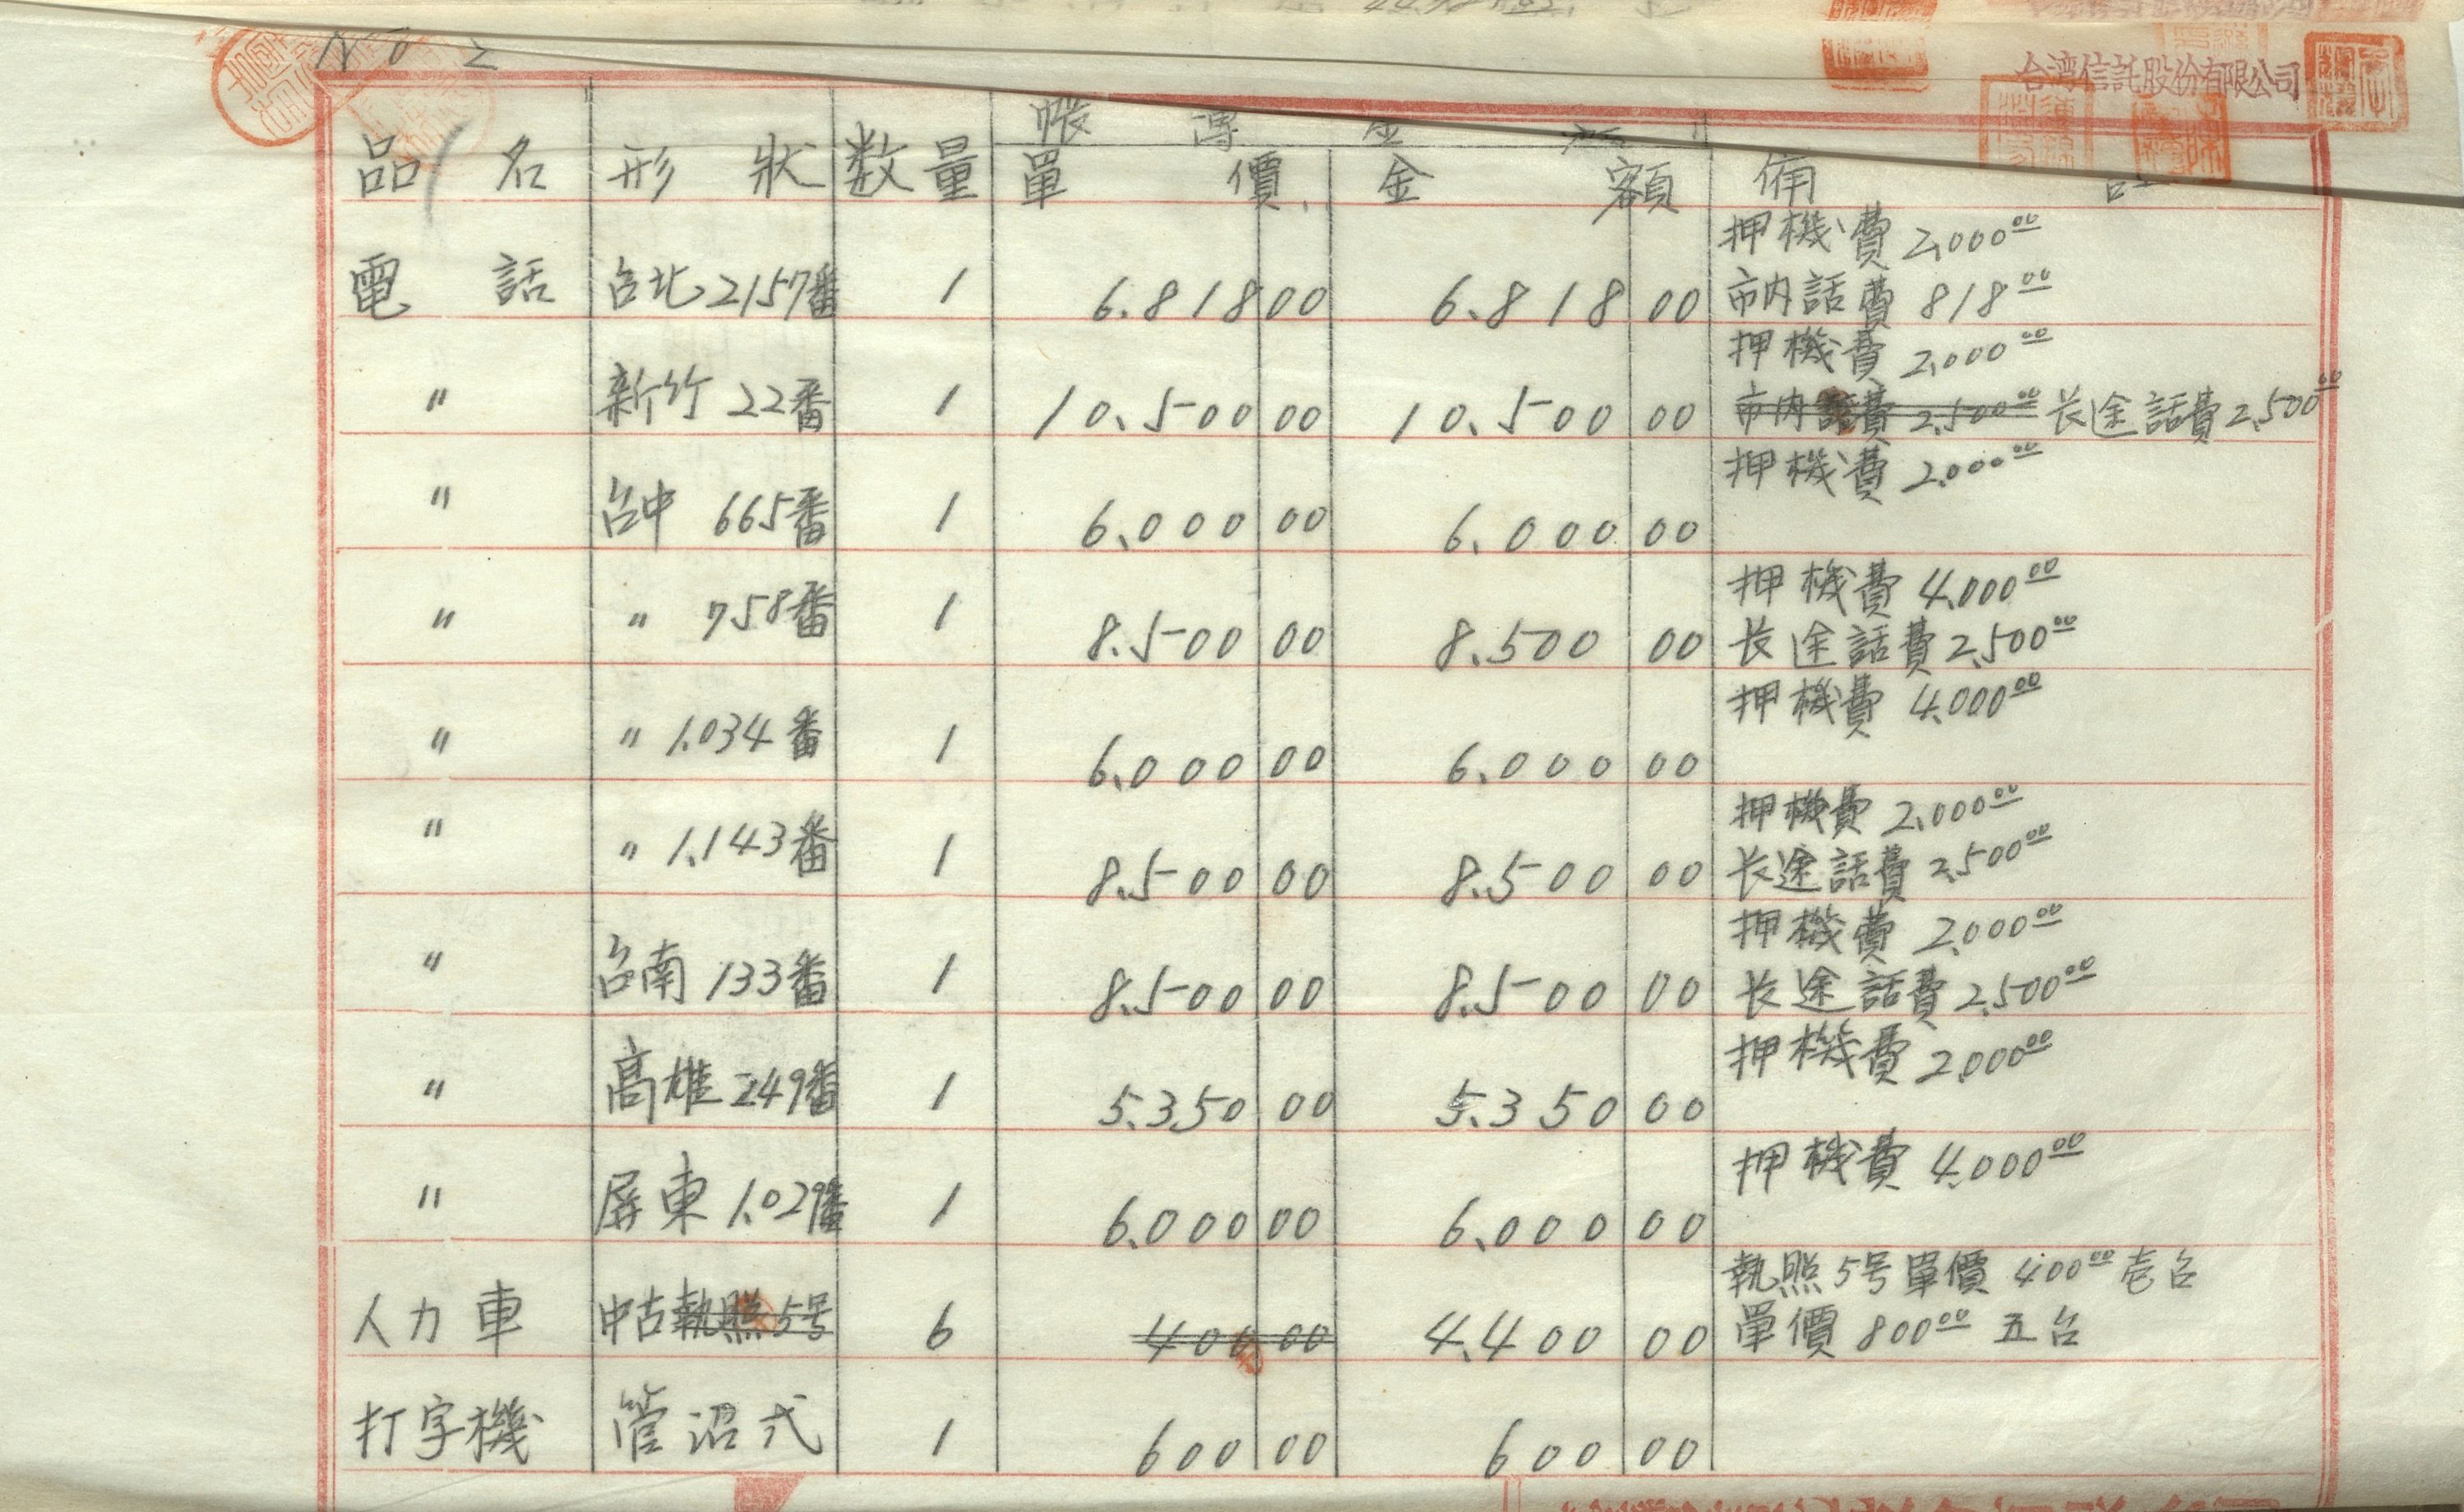 No 2
台湾信託股份有限公司
帳 簿 金
品 名 形 狀 数量 單 價 金 額 備
押機費 2,000.00
電 話 台北2157番 1 6.818 00 6.818 00 市内話費 818.00
押機費 2,000.00
〃 新竹 22番 1 10.500 00 10.500 00 市内話費 2,500.00 长途話費 2,500.00
押機費 2,000.00
〃 台中 665番 1 6.000 00 6.000 00
押機費 4,000.00
〃 〃 758番 1 8.500 00 8.500 00 长途話費 2,500.00
押機費 4,000.00
〃 〃 1.034番 1 6.000 00 6.000 00
押機費 2,000.00
〃 〃 1.143番 1 8.500 00 8.500 00 长途話費 2,500.00
押機費 2,000.00
〃 台南 133番 1 8.500 00 8.500 00 长途話費 2,500.00
押機費 2,000.00
〃 高雄 249番 1 5.350 00 5.350 00
押機費 4,000.00
〃 屏東 1.029番 1 6.000 00 6.000 00
執照5号單價 400.00 壱台
人力車 中古執照5号 6 400 00 4.400 00 單價 800.00 五台
打字機 管沼式 1 600 00 600 00